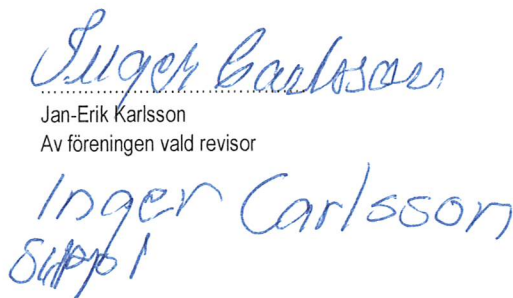 Inger Carlsson
Jan-Erik Karlsson
Av föreningen vald revisor
Inger Carlsson
Suppl